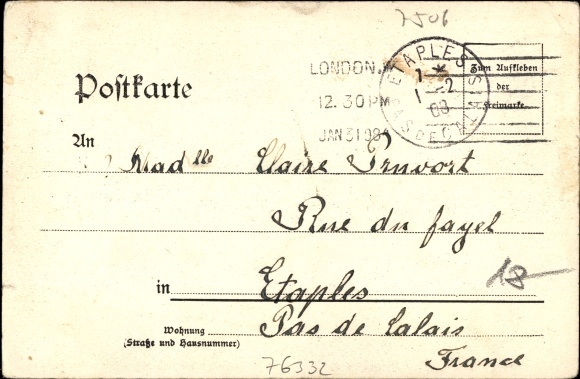 7506
LONDON.
12. 30 PM
JAN 31 08
ETAPLES
1-2
08
PAS DE CALAIS
Zum Aufkleben
der
Freimarke.
Postkarte
An
Mad lle Claire Pruvort
Rue du fayel
18
in Etaples
Wohnung
(Straße und Hausnummer)
Pas de Calais
France
76332